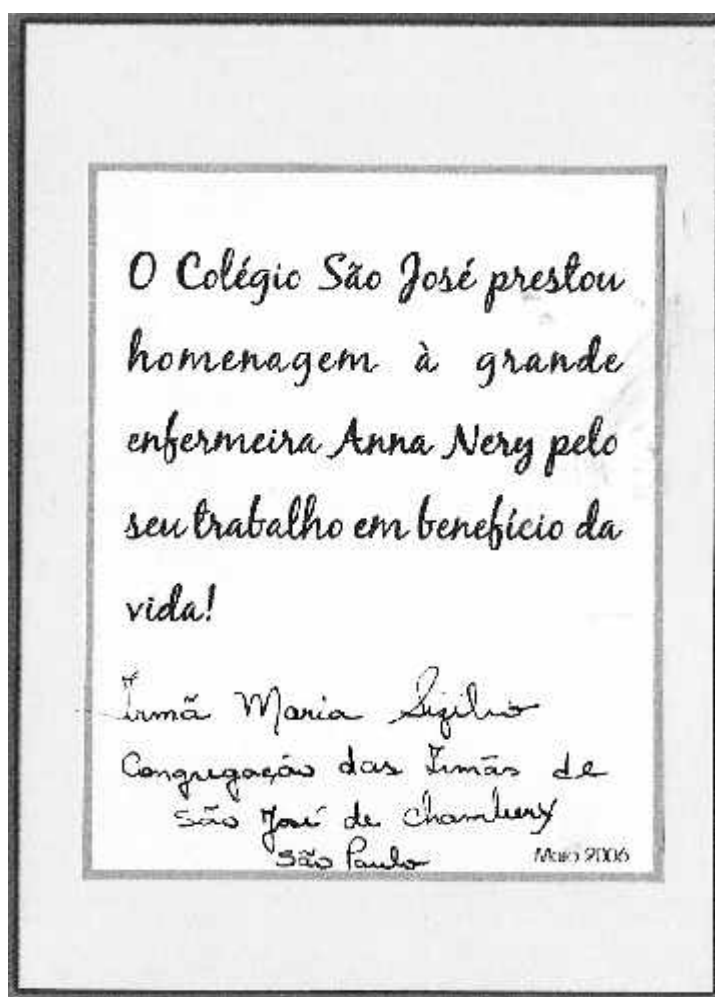 O Colégio São José prestou
homenagem à grande
enfermeira Anna Nery pelo
seu trabalho em benefício da
vida!
Irmã Maria
Congregação das Irmãs de
São José de Chambery
São Paulo
Maio 2006